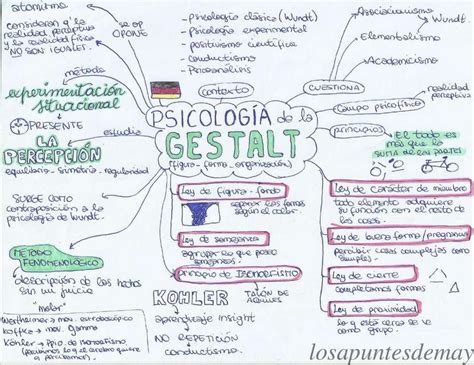 atomismo
consideran q' la
realidad perceptiva
y la realidad física
NO SON IGUALES.
se
OPONE
- psicología clásica (Wundt)
- psicología experimental
- positivismo científico
- conductismo
- Psicoanálisis
contexto
Associacionismo
Wundt.
Elementalismo
Academicismo
CUESTIONA
Campo psicofísico
realidad
perceptiva
método
experimentación
situacional
PRESENTE
estudia
LA
PERCEPCIÓN
equilibrio - simetría - regularidad
PSICOLOGÍA de la
GESTALT
(figura - forma - organización)
principios
El todo es
más que la
SUMA de las PARTES
SURGE COMO
contraposición a la
psicología de Wundt.
MÉTODO
FENOMENOLÓGICO
descripción de los hechos
sin un juicio
"molar"
Wertheimer → mov. estroboscópico
Koffka → mov. gamma
Köhler → ppio. de isomorfismo
Ley de figura - fondo
separar las formas
según el color.
Ley de semejanza
agrupar lo que posee
semejanzas
PRINCIPIO DE ISOMORFISMO
KÖHLER
TALÓN DE
AQUILES
aprendizaje insight
NO REPETICIÓN
conductismo
Ley de carácter de miembro
todo elemento adquiere
su función con el resto de
las cosas.
Ley de buena forma/pregnancia
percibir cosas complejas como
simples.
Ley de cierre
completamos formas
Ley de proximidad
lo q' está cerca se ve
como un todo
losapuntesdemay